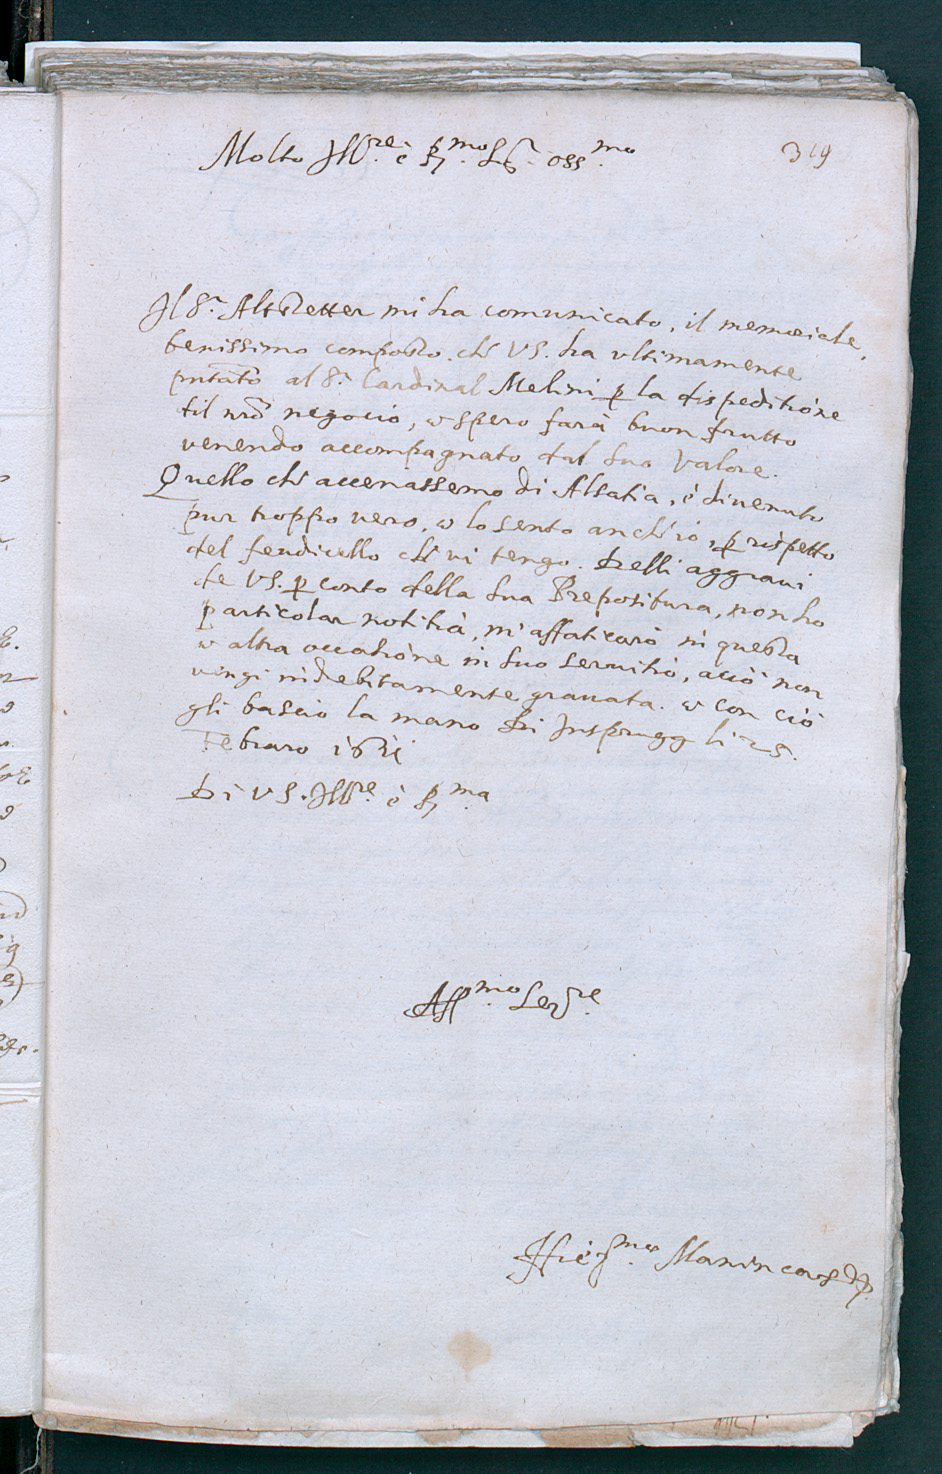 Molto Ill.re è R.mo Sig.r oss.mo
319
Il S.r Altstetter mi ha comunicato, il memoriale,
benissimo composto. che VS. ha ultimamente
pñtato al S.r Cardinal Melini p la dispeditione
del nr̃o negocio, e spero farà buon frutto
venendo accompagnato dal suo Valore.
Quello che accenassemo di Alsatia, è divenuto
pur troppo vero, e lo sento anch'io, p rispetto
del feudicello che vi tengo. Delli aggravi
de VS. p conto della sua Prepositura, non ho
particolar notitia, m'affaticarò in questa
e altra occasione in suo servitio, acciò non
vengi indebitamente gravata. e con ciò
gli bascio la mano Di Insprugg li 25.
Febraro
Di VS. Ill.re è R.ma
Aff.mo Ser.re
Hie.mo Manincor